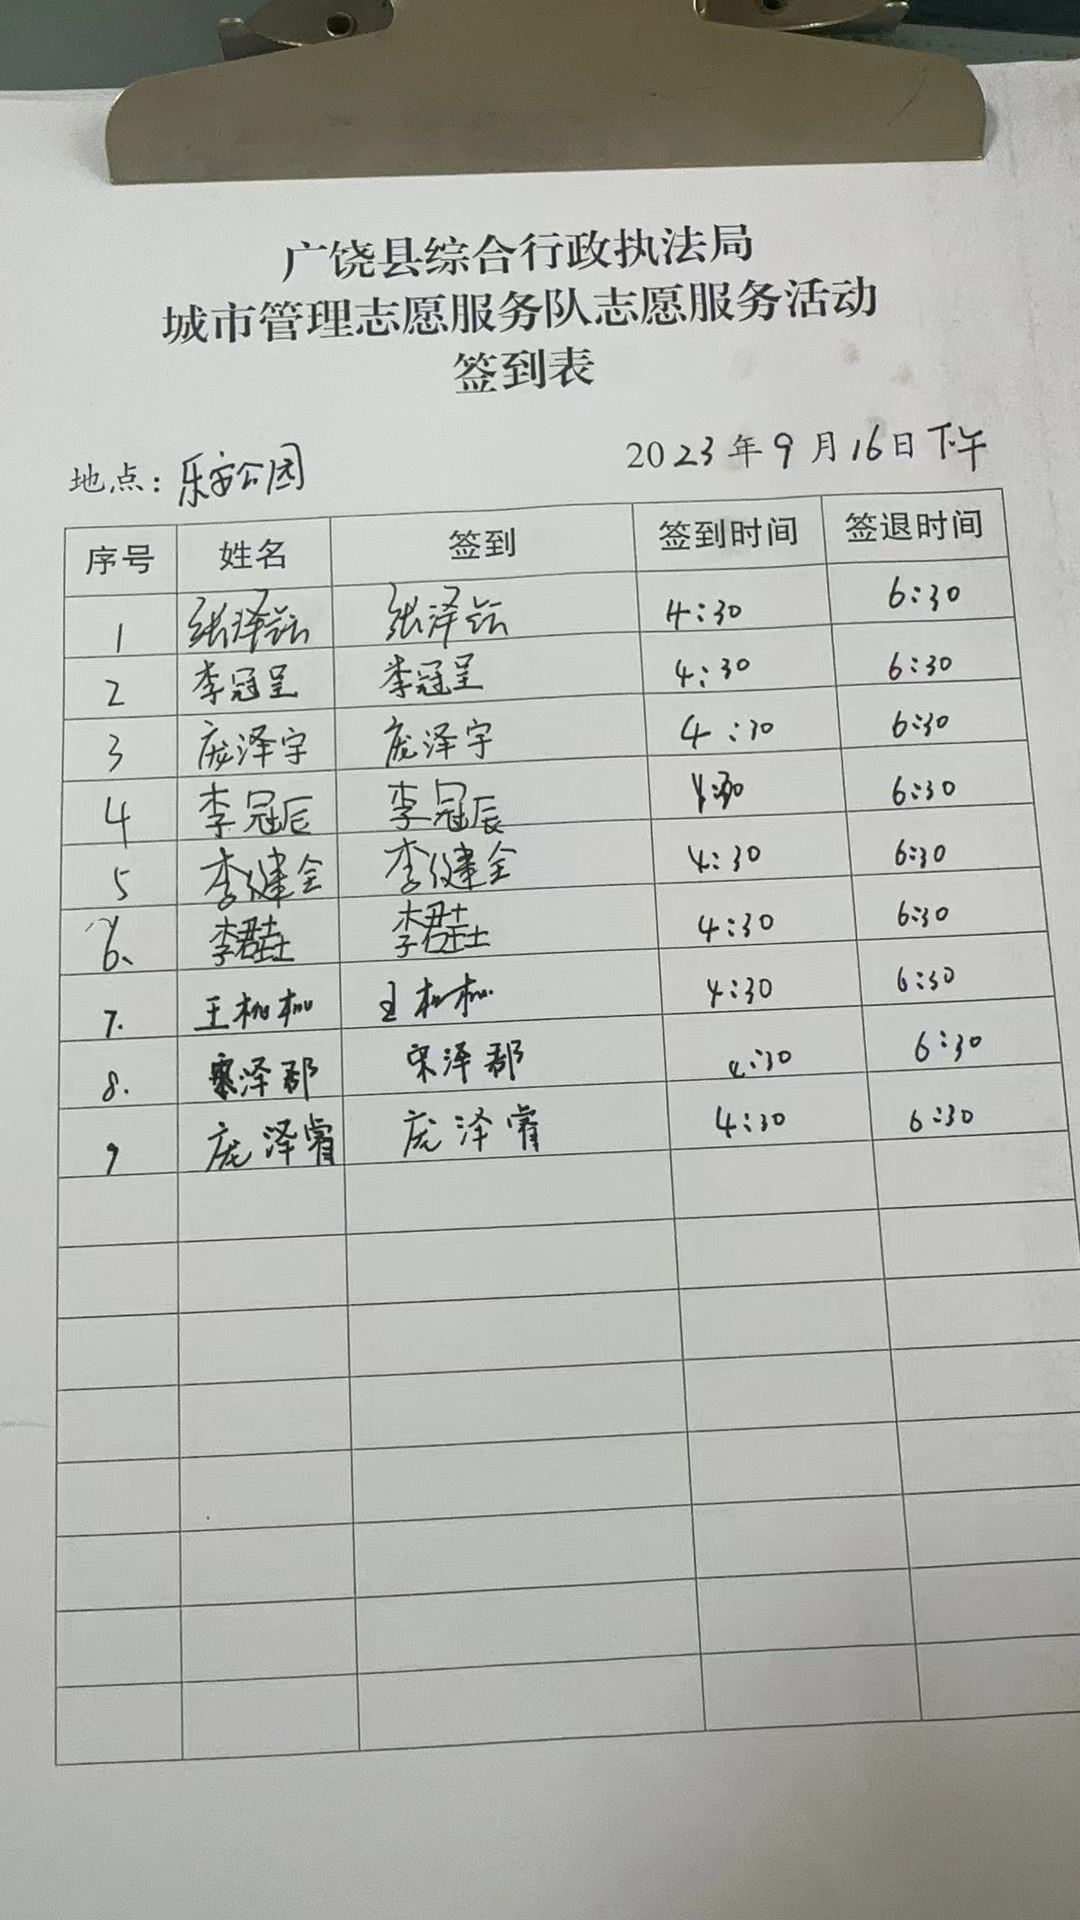 广饶县综合行政执法局
城市管理志愿服务队志愿服务活动
签到表
地点：乐安公园 2023年9月16日下午
序号 姓名 签到 签到时间 签退时间
1 张泽 张泽 4:30 6:30
2 李冠呈 李冠呈 4:30 6:30
3 庞泽宇 庞泽宇 4:30 6:30
4 李冠辰 李冠辰 4:30 6:30
5 李健全 李健全 4:30 6:30
6、 李君 李君 4:30 6:30
7. 王 王 4:30 6:30
8. 宋泽郡 宋泽郡 4:30 6:30
9 庞泽睿 庞泽睿 4:30 6:30